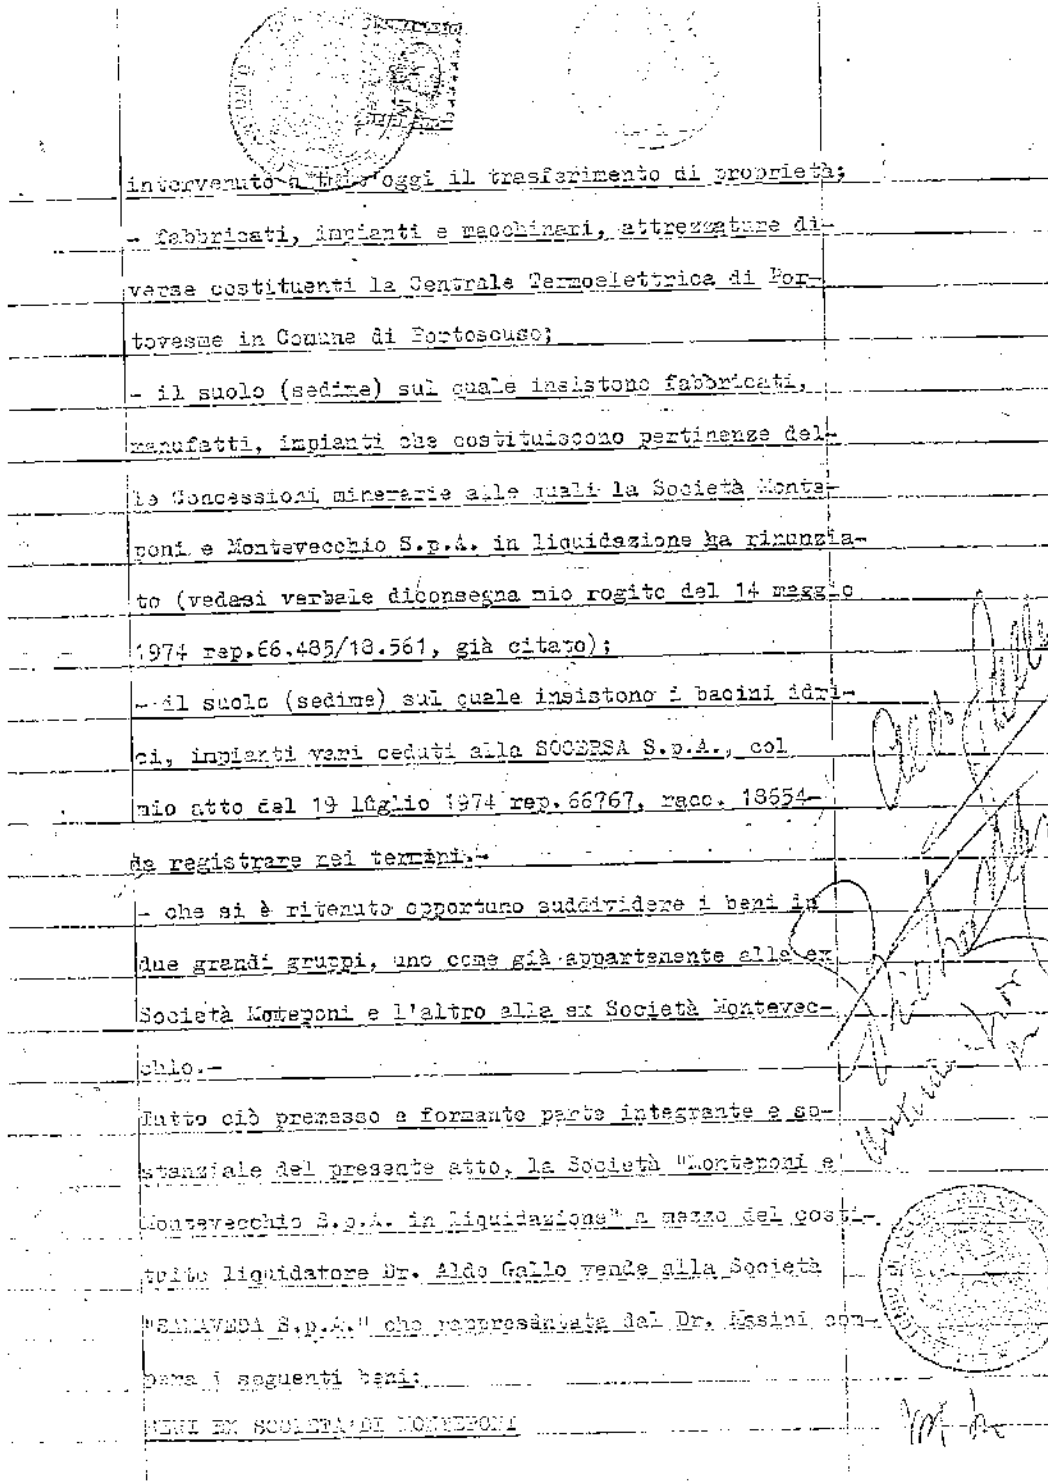 intervenuto a tutt'oggi il trasferimento di proprietà;
- fabbricati, impianti e macchinari, attrezzature di-
verse costituenti la Centrale Termoelettrica di Por-
tovesme in Comune di Portoscuso;
- il suolo (sedime) sul quale insistono fabbricati,
manufatti, impianti che costituiscono pertinenze del-
le Concessioni minerarie alle quali la Società Monte-
poni e Montevecchio S.p.A. in liquidazione ha rinunzia-
to (vedasi verbale diconsegna mio rogito del 14 maggio
1974 rep.66.485/18.561, già citato);
- il suolo (sedime) sul quale insistono i bacini idri-
ci, impianti vari ceduti alla SOGERSA S.p.A., col
mio atto del 19 lùglio 1974 rep. 66767, racc. 18654-
da registrare nei termini.-
- che si è ritenuto opportuno suddividere i beni in
due grandi gruppi, uno come già appartenente alla ex
Società Moteponi e l'altro alla ex Società Montevec-
chio.-
Tutto ciò premesso e formante parte integrante e so-
stanziale del presente atto, la Società "Monteponi e
Montevecchio S.p.A. in liquidazione" a mezzo del costi-
tuito liquidatore Dr. Aldo Gallo vende alla Società
S.p.A." che rappresentata dal Dr. Masini com-
pera i seguenti beni:
BENI EX SOCIETA' DI MONTEPONI